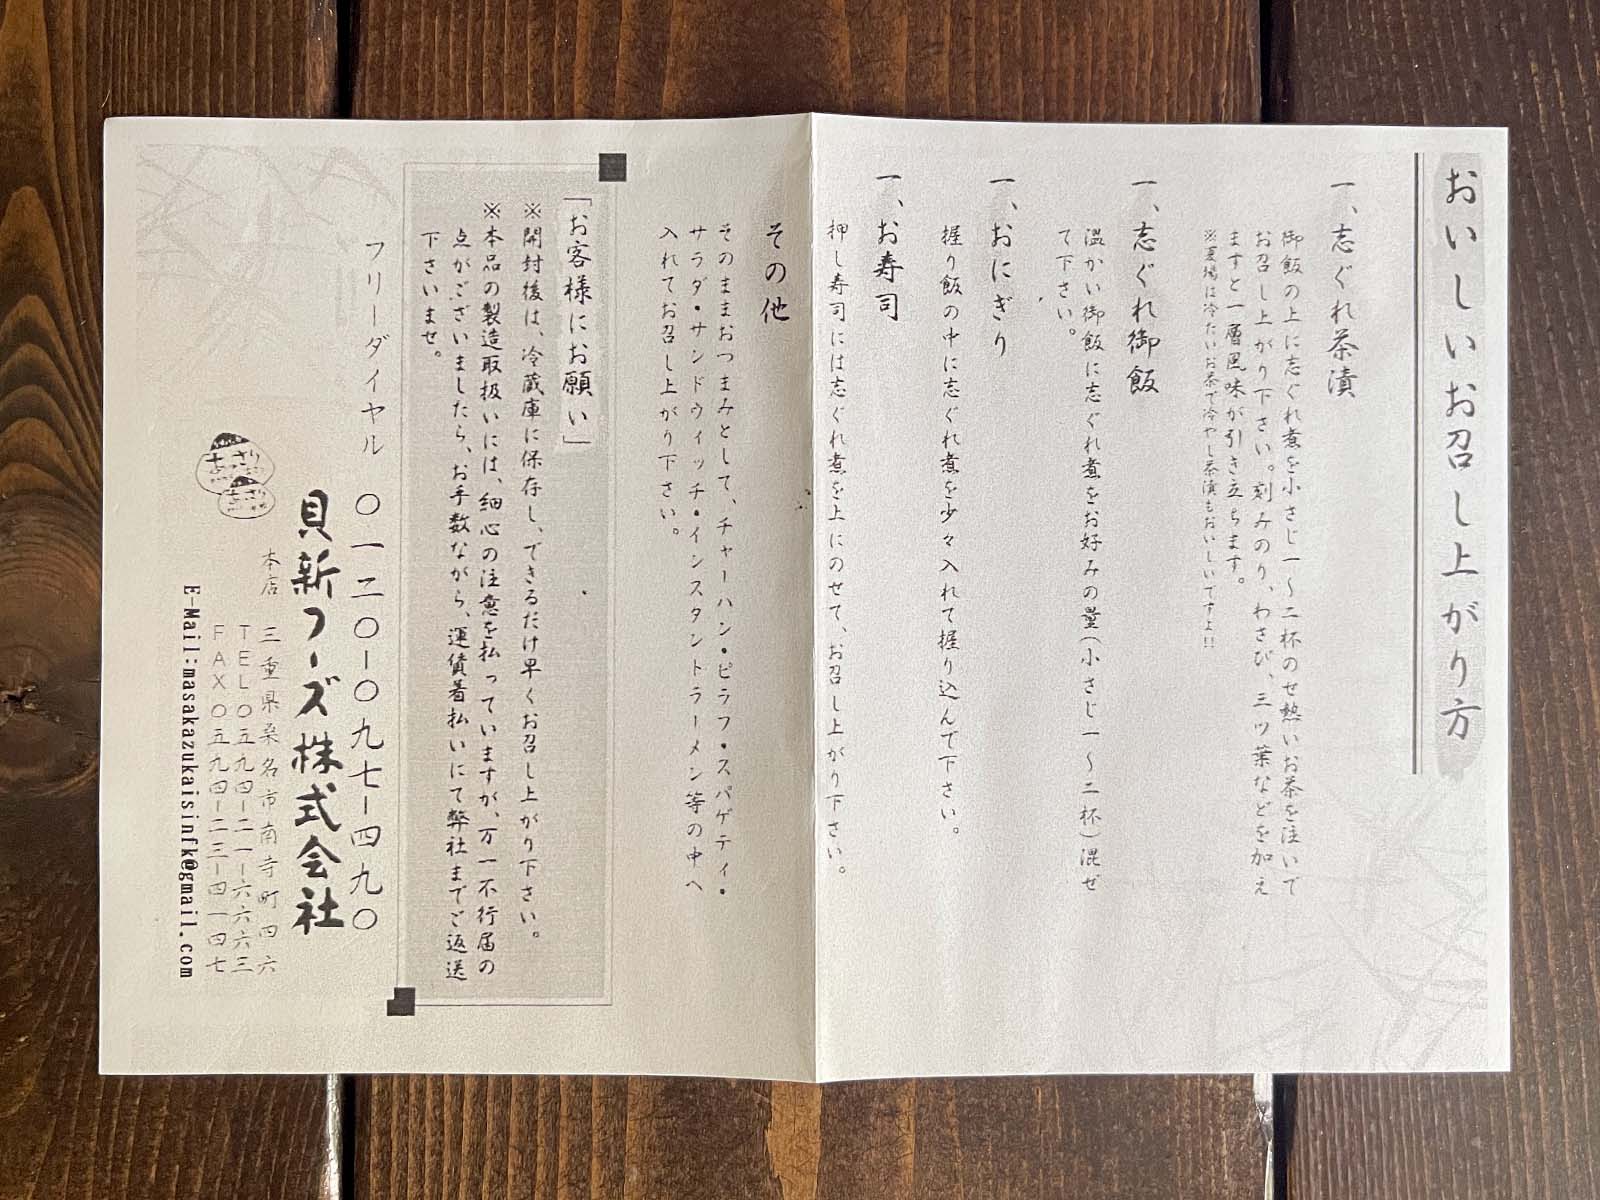 おいしいお召し上がり方
一、志ぐれ茶漬
御飯の上に志ぐれ煮を小さじ一～二杯のせ熱いお茶を注いで
お召し上がり下さい。刻みのり、わさび、三ツ葉などを加え
ますと一層風味が引き立ちます。
※夏場は冷たいお茶で冷やし茶漬もおいしいですよ!!
一、志ぐれ御飯
温かい御飯に志ぐれ煮をお好みの量(小さじ一～二杯)混ぜ
て下さい。
一、おにぎり
握り飯の中に志ぐれ煮を少々入れて握り込んで下さい。
一、お寿司
押し寿司には志ぐれ煮を上にのせて、お召し上がり下さい。
その他
そのままおつまみとして、チャーハン・ピラフ・スパゲティ・
サラダ・サンドウィッチ・インスタントラーメン等の中へ
入れてお召し上がり下さい。
「お客様にお願い」
※開封後は、冷蔵庫に保存し、できるだけ早くお召し上がり下さい。
※本品の製造取扱いには、細心の注意を払っていますが、万一不行届の
点がございましたら、お手数ながら、運賃着払いにて弊社までご返送
下さいませ。
フリーダイヤル 〇一二〇-〇九七-四九〇
貝新フーズ株式会社
本店 三重県桑名市南寺町四六
TEL〇五九四-二一-六六六三
FAX〇五九四-二三-四一四七
E-Mail:masakazukaisinfk@gmail.com